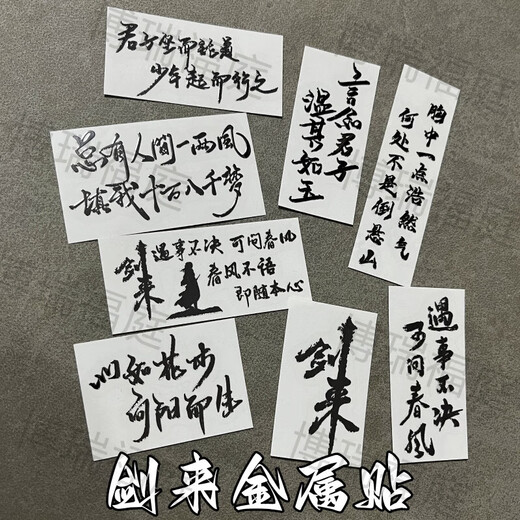 君子坐而論道
少年起而行之
言念君子
温其如玉
胸中一点浩然气
何处不是倒悬山
總有人間一两風
填我十万八千梦
剑来
遇事不决 可问春风
春风不语
即随本心
心如花木
向阳而生
剑来
遇事不决
可问春風
剑来金属贴
博瑞福庭